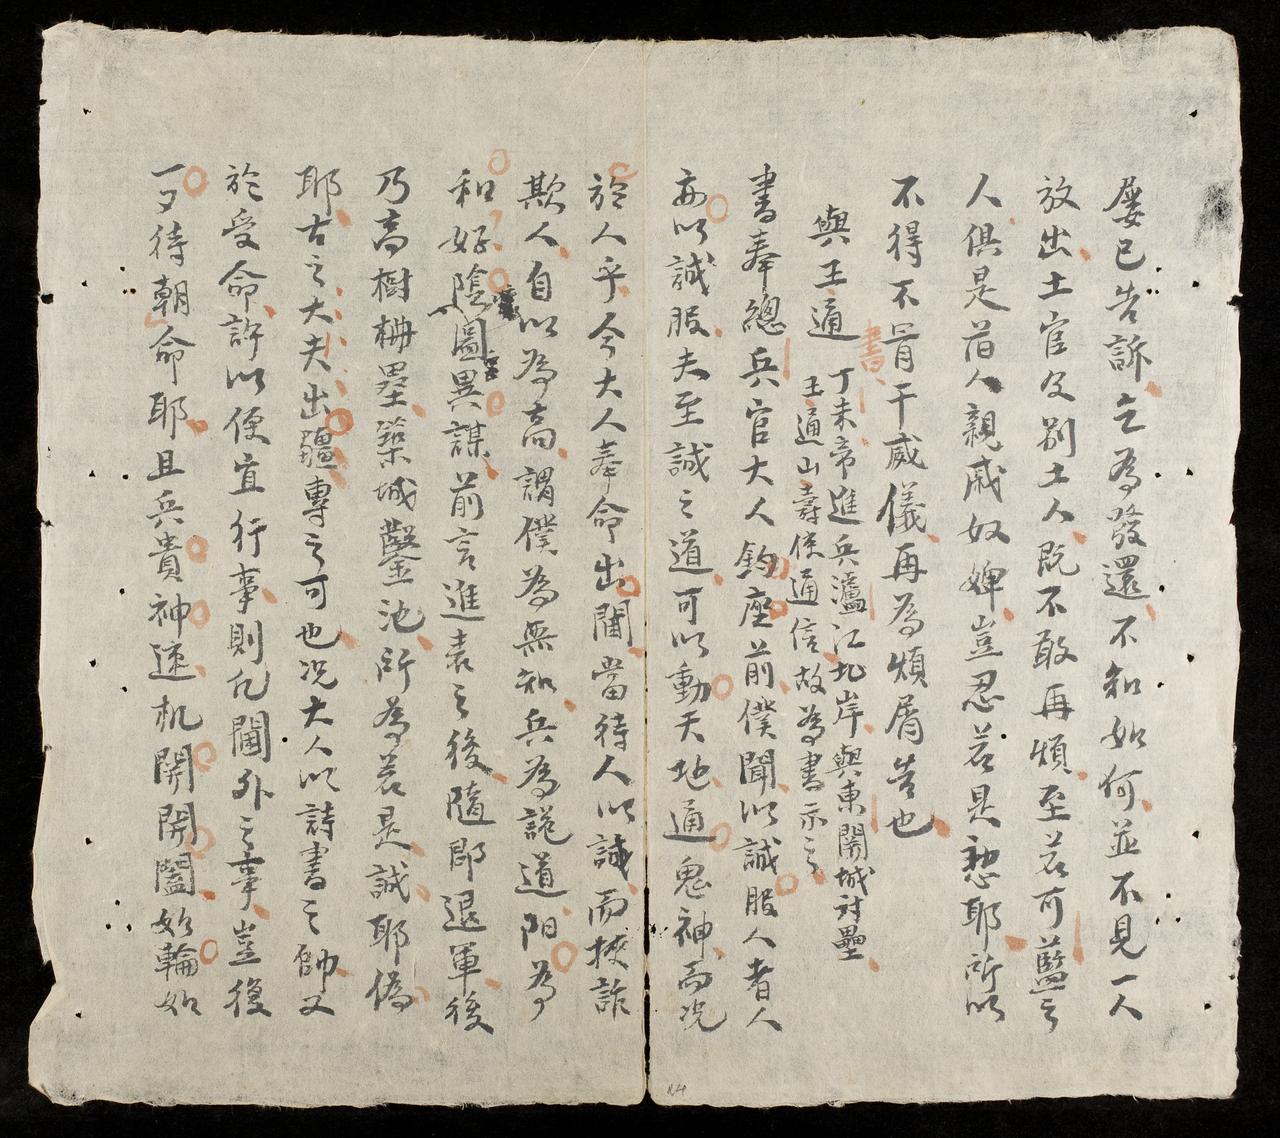 屢已告訴乞為發還不知如何並不見一人
放出土官及別土人既不敢再煩至若可藍之
人俱是前人親戚奴婢豈忍若是愸耶所以
不得不冐干威儀再為煩屑告也
與王通書
丁未帝進兵瀘江北岸與東關城対壘
王通山壽使通信故為書示之
書奉總兵官大人鈞座前僕聞以誠服人者人
亦以誠服夫至誠之道可以動天地通鬼神而况
於人乎今大人奉命出閫當待人以誠而挾詐
欺人自以為高謂僕為無知兵為詭道阳為
和好陰圖異謀前言進表之後隨即退軍後
乃高樹柵壘築城鑿池所為若是誠耶偽
耶古之大夫出疆專之可也况大人以詩書之帥又
於受命許以便宜行事則凡閫外之事豈復
一夕待朝命耶且兵貴神速机開開闔如輪如